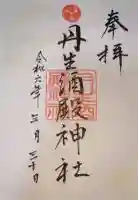 奉拝
丹生酒殿神社
令和六年三月三十日